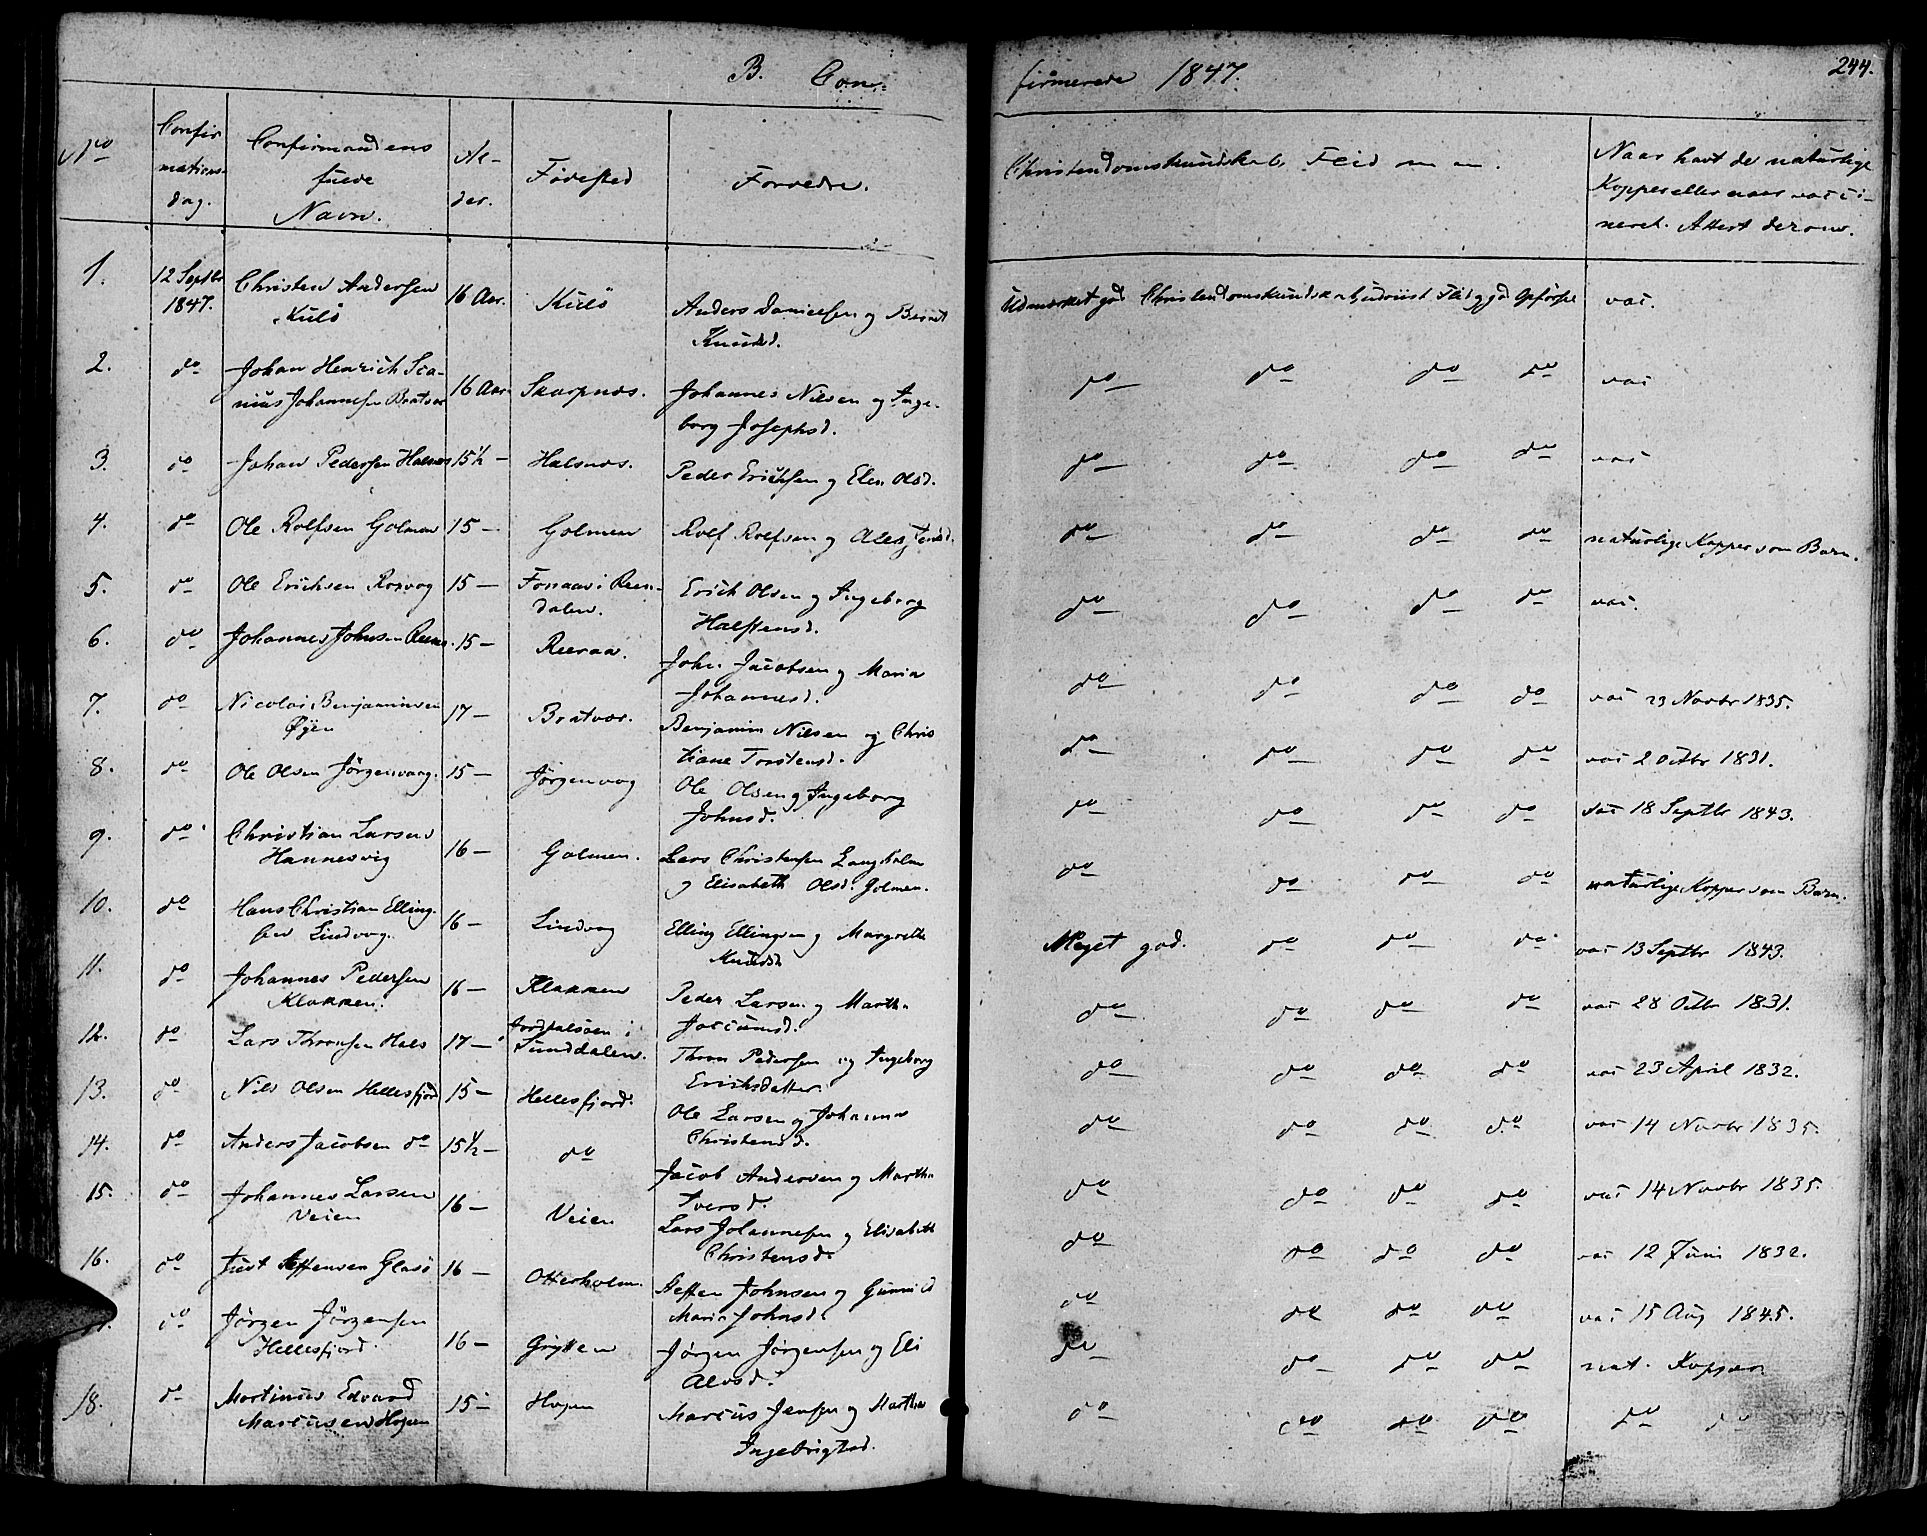 B. Con-
firmerede 1847.
244.
No
Confir
mations-
dag.
Confirmandens
fulde
Navn.
Al-
der.
Fødested
Forældre.
Christendomskundskab, Flid
Naar havt de naturlige
Kopper eller naar vacci-
neret. Attest derom.
1. 12 Septbr Christen Andersen 16 Aar. Kulø Anders Danielsen og Berret Udmærket god Christendomskundskab Flid og god Opførsel vac.
1847. Kulø Knudsd.
2. do Johan Henrich Sca- 16 Aar. Skarpnæs. Johannes Nilsen og Inge- do do do do vac
nius Johannesen Bratvær borg Josephsd.
3. do Johan Pedersen Halsnes 15½ — Halsnæs. Peder Erichsen og Elen Olsd. do do do do vac
4. do Ole Rolfsen Golmen 15 — Golmen Rolf Rolfsen og do do do do naturlige Kopper som Barn.
5. do Ole Erichsen Rosvog 15 — Erich Olsen og Ingeborg do do do do vac.
dalen. Halstensd.
6. do Johannes Johnsen 15 — John Jacobsen og Maria do do do do vac 23 Novbr 1835.
Johannesd.
7. do Nicolai Benjaminsen 17 — Bratvær. Benjamin Nilsen og Chris do do do do vac 2 Octbr 1831.
Øyen tiane Torstensd.
8. do Ole Olsen Jørgenvaag. 15 — Jørgenvog Ole Olsen og Ingeborg do do do do vac 18 Septbr 1843.
Johnsd.
9. do Christian Larsen 16 — Golmen. Lars Christensen Langholm do do do do naturlige Kopper som Barn.
Hannesvig og Elisabeth Olsd. Golmen.
10. do Hans Christian Elling- 16 — Lindvog Elling Ellingsen og Margrethe Meget god. do do do vac 13 Septbr 1843.
sen Lindvog. Knudsd.
11. do Johannes Pedersen 16 — Klakken Peder Larsen og Martha do do do do vac 28 Octbr 1831.
Klakken.
12. do Lars Thronsen Hals 17 — Jordalsøen i Thron Pedersen og Ingeborg do do do do vac 23 April 1832.
Sunddalen. Erichsdatter.
13. do Nils Olsen Hellesfjord 15 — Hellesfjord. Ole Larsen og Johanna do do do do vac 14 Novbr 1835.
Christensd.
14. do Anders Jacobsen do 15½ — do Jacob Andersen og Martha do do do do vac 14 Novbr 1835.
Iversd.
15. do Johannes Larsen 16 — Veien Lars Johannesen og Elisabeth do do do do vac 12 Juni 1832.
Veien Christensd.
16. do Just Steffensen Glasø 16 — Otterholm. Steffen Johnsen og Gunnild do do do do vac 15 Aug 1845.
Maria Johnsd.
do Jørgen Jørgensen 16 — Grytten Jørgen Jørgensen og Eli do do do do nat. Kopper
Hellesfjord. Alvsd.
18. do Martinus Edvard 15 — Hogen Marcus Jensen og Martha do do do do do do
Marcusen Hogen Ingebrigtsd.